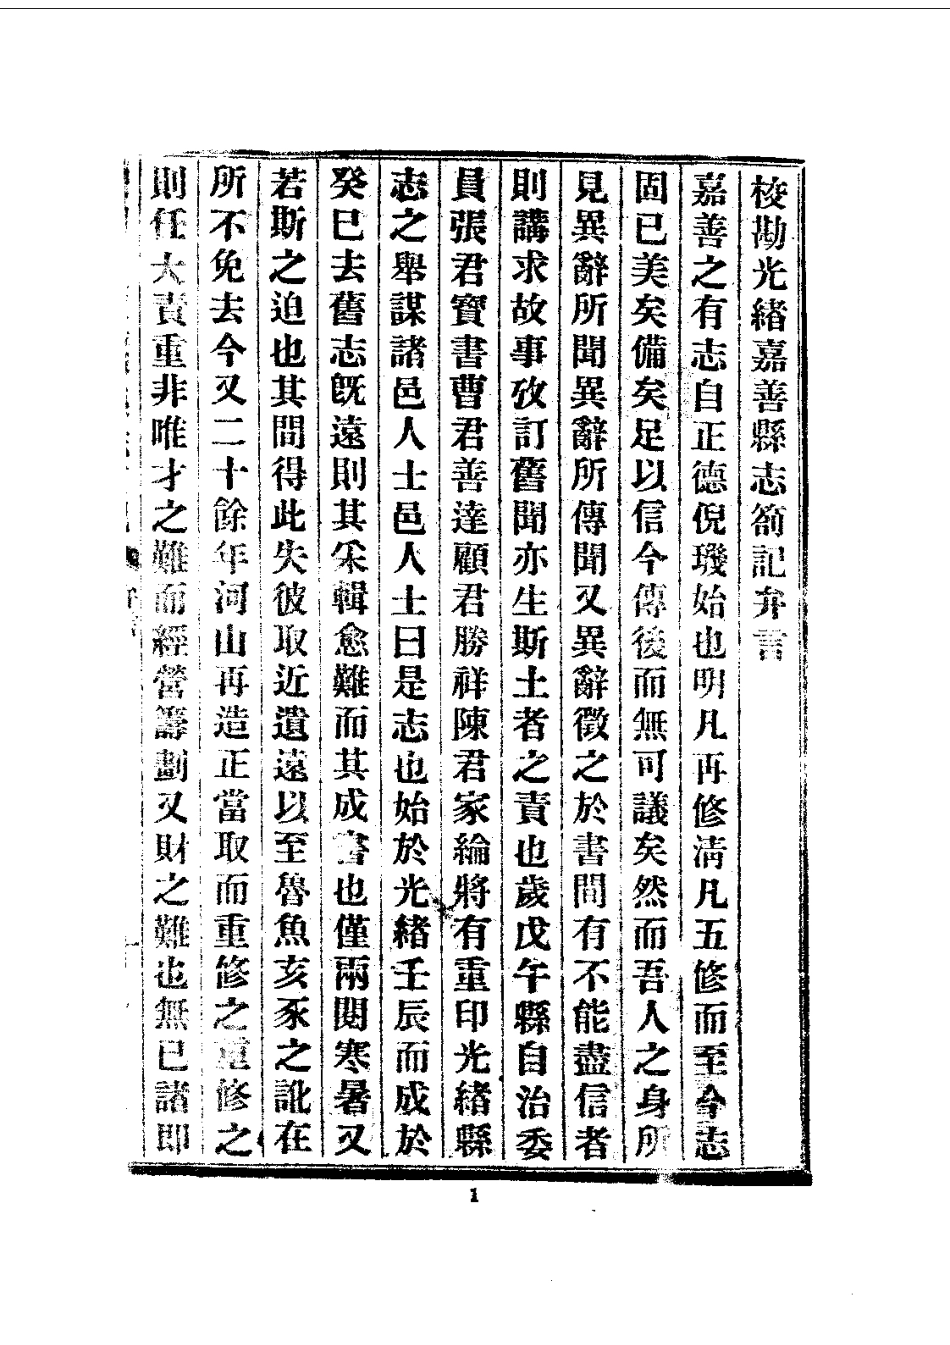 校勘光緒嘉善縣志劄記弁言
嘉善之有志自正德倪璣始也明凡再修清凡五修而至今志
固已美矣備矣足以信今傳後而無可議矣然而吾人之身所
見異辭所聞異辭所傳聞又異辭徵之於書間有不能盡信者
則講求故事攷訂舊聞亦生斯土者之責也歲戊午縣自治委
員張君寶書曹君善達顧君勝祥陳君家綸將有重印光緒縣
志之舉謀諸邑人士邑人士曰是志也始於光緒壬辰而成於
癸巳去舊志旣遠則其采輯愈難而其成書也僅兩閱寒暑又
若斯之迫也其間得此失彼取近遺遠以至魯魚亥豕之訛在
所不免去今又二十餘年河山再造正當取而重修之重修之
則任大責重非唯才之難而經營籌劃又財之難也無已諸即
1